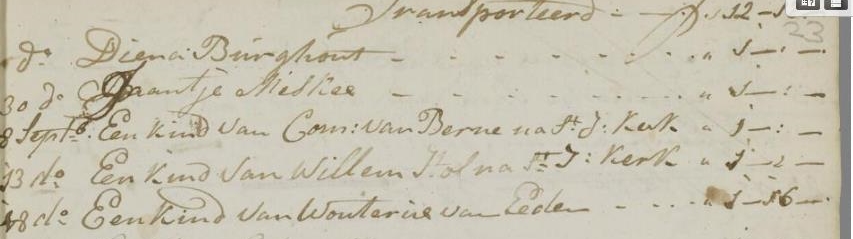 Transporteerd - - ƒ 12 -
23
do Diena Burghout - - - - - - - " 1 - : -
30 do Jaantje Meskee - - - - - - " 1 - : -
8 Septb: Een kind van Corn: van Berne na St J: Kerk " 1 - : -
13 do Een kind van Willem Hol na St J: Kerk " 1 - 2 -
18 do Een kind van Wouterus van Eeden - - - - " 1 - 16 -